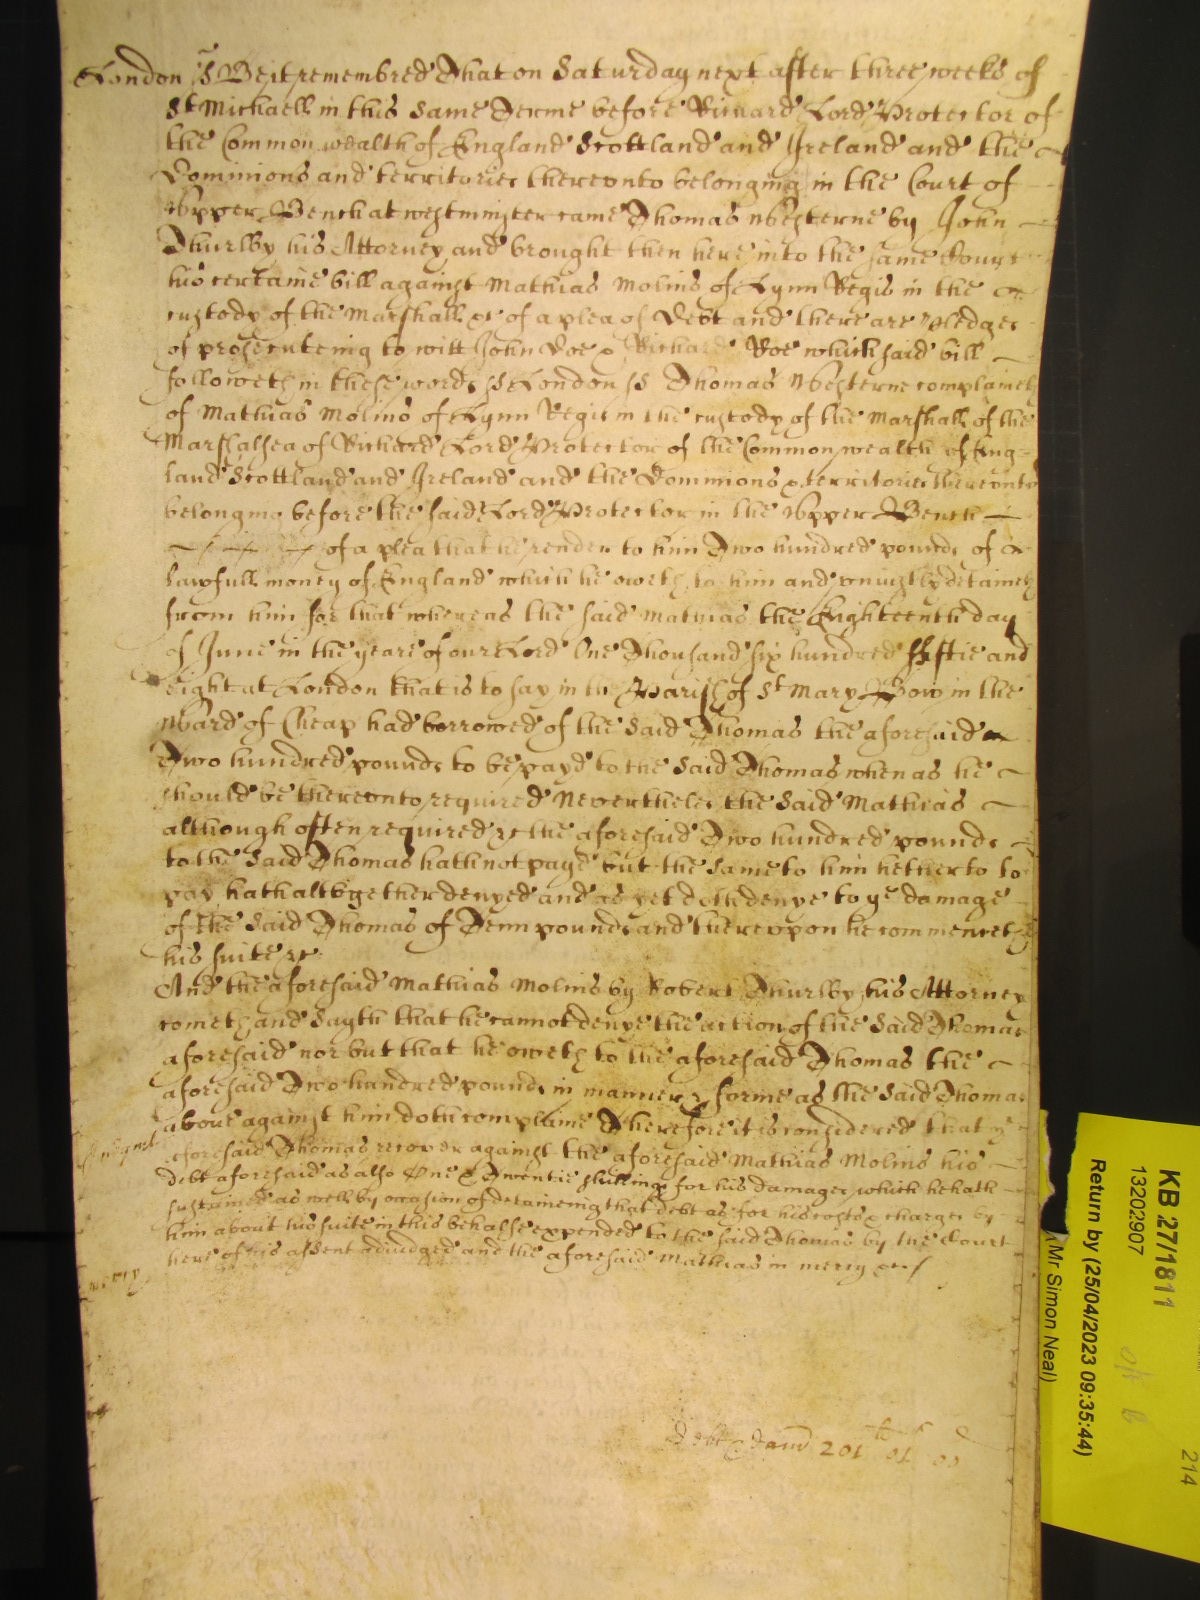 London ss Be it remembred That on Saturday next after three weeks of
St Michaell in this same Terme before Richard Lord Protector of
the Common wealth of England Scottland and Ireland and the
Dominions and territories thereonto belonging in the Court of
Upper Bench at westminster came Thomas Westerne by John
Thurlby his Attorney and brought then here into the same Court
his certaine bill against Mathias Molins of Lynn Regis in the
custody of the Marshall &c of a plea of Debt and there are pledges
of prosecuteing to witt John Doe & Richard Roe which said bill
followeth in these words ss London ss Thomas Westerne complaineth
of Mathias Molins of Lynn Regis in the custody of the Marshall of the
Marshalsea of Richard Lord Protector of the Common wealth of Eng
land Scottland and Ireland and the Dominions & territories thereonto
belonging before the said Lord Protector in the Upper Bench
of a plea that he render to him Two hundred pounds of
lawfull money of England which he oweth to him and uniustly detaineth
from him for that whereas the said Mathias the Eighteenth day
of June in the yeare of oure Lord One Thousand six hundred fiftie and
eight at London that is to say in the Parish of St Mary Bow in the
Ward of Cheap had borrowed of the said Thomas the aforesaid
Two hundred pounds to be payd to the said Thomas when as he
should be thereonto required Nevertheles the said Mathias
although often required &c the aforesaid Two hundred pounds
to the said Thomas hath not payd but the same to him hetherto to
pay hath altogether denyed and as yet doth denye to ye damage
of the said Thomas of Tenn pounds and thereuppon he commenceth
his suite &c
And the aforesaid Mathias Molins by Robert Thurlby his Attorney
cometh and sayth that he cannot denye the action of the said Thomas
aforesaid nor but that he oweth to the aforesaid Thomas the
aforesaid Two hundred pounds in manner & forme as the said Thomas
above against him doth complaine Therefore it is considered that ye
aforesaid Thomas recover against the aforesaid Mathias Molins his
debt aforesaid as also One & Twentie shillings for his damages which he hath
sustained as well by occasion of detaineing that debt as for his costs & charges by
him about his suite in this behalfe expended to the said Thomas by the Court
here of his assent adiudged and the aforesaid Mathias in mercy &c
mercy
Debt & dam 201 01 00
KB 27/1811
13202907
Return by (25/04/2023 09:35:44)
Mr Simon Neal)
214